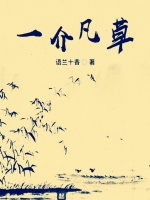 一介凡草
语兰十香 著